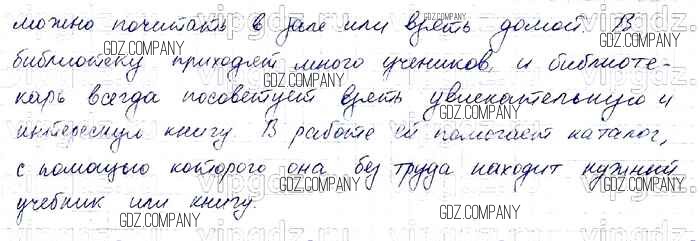 можно почитать в зале или взять домой. В
библиотеку приходят много учеников, и библиоте-
карь всегда посоветует взять увлекательную и
интересную книгу. В работе ей помогает каталог,
с помощью которого она без труда находит нужный
учебник или книгу.
GDZ.COMPANY
GDZ.COMPANY
GDZ.COMPANY
GDZ.COMPANY
GDZ.COMPANY
GDZ.COMPANY
GDZ.COMPANY
GDZ.COMPANY
GDZ.COMPANY
GDZ.COMPANY